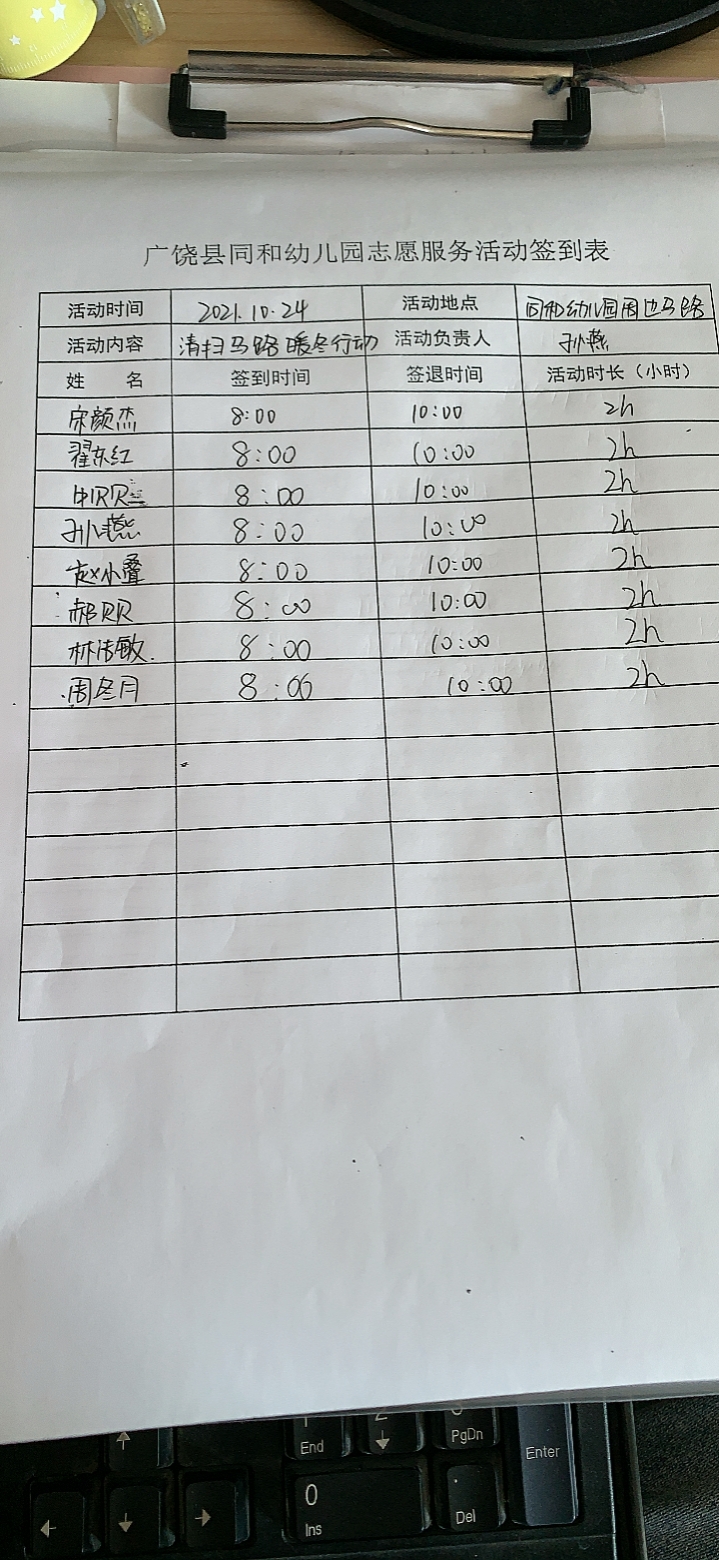 广饶县同和幼儿园志愿服务活动签到表
活动时间 2021.10.24 活动地点 同和幼儿园周边马路
活动内容 清扫马路 暖冬行动 活动负责人 孙燕
姓 名 签到时间 签退时间 活动时长（小时）
宋颜杰 8:00 10:00 2h
翟东红 8:00 10:00 2h
8:00 10:00 2h
孙燕 8:00 10:00 2h
赵小叠 8:00 10:00 2h
郝贝贝 8:00 10:00 2h
林洁敏 8:00 10:00 2h
周冬月 8:00 10:00 2h
End
PgDn
Enter
0
Ins
.
Del